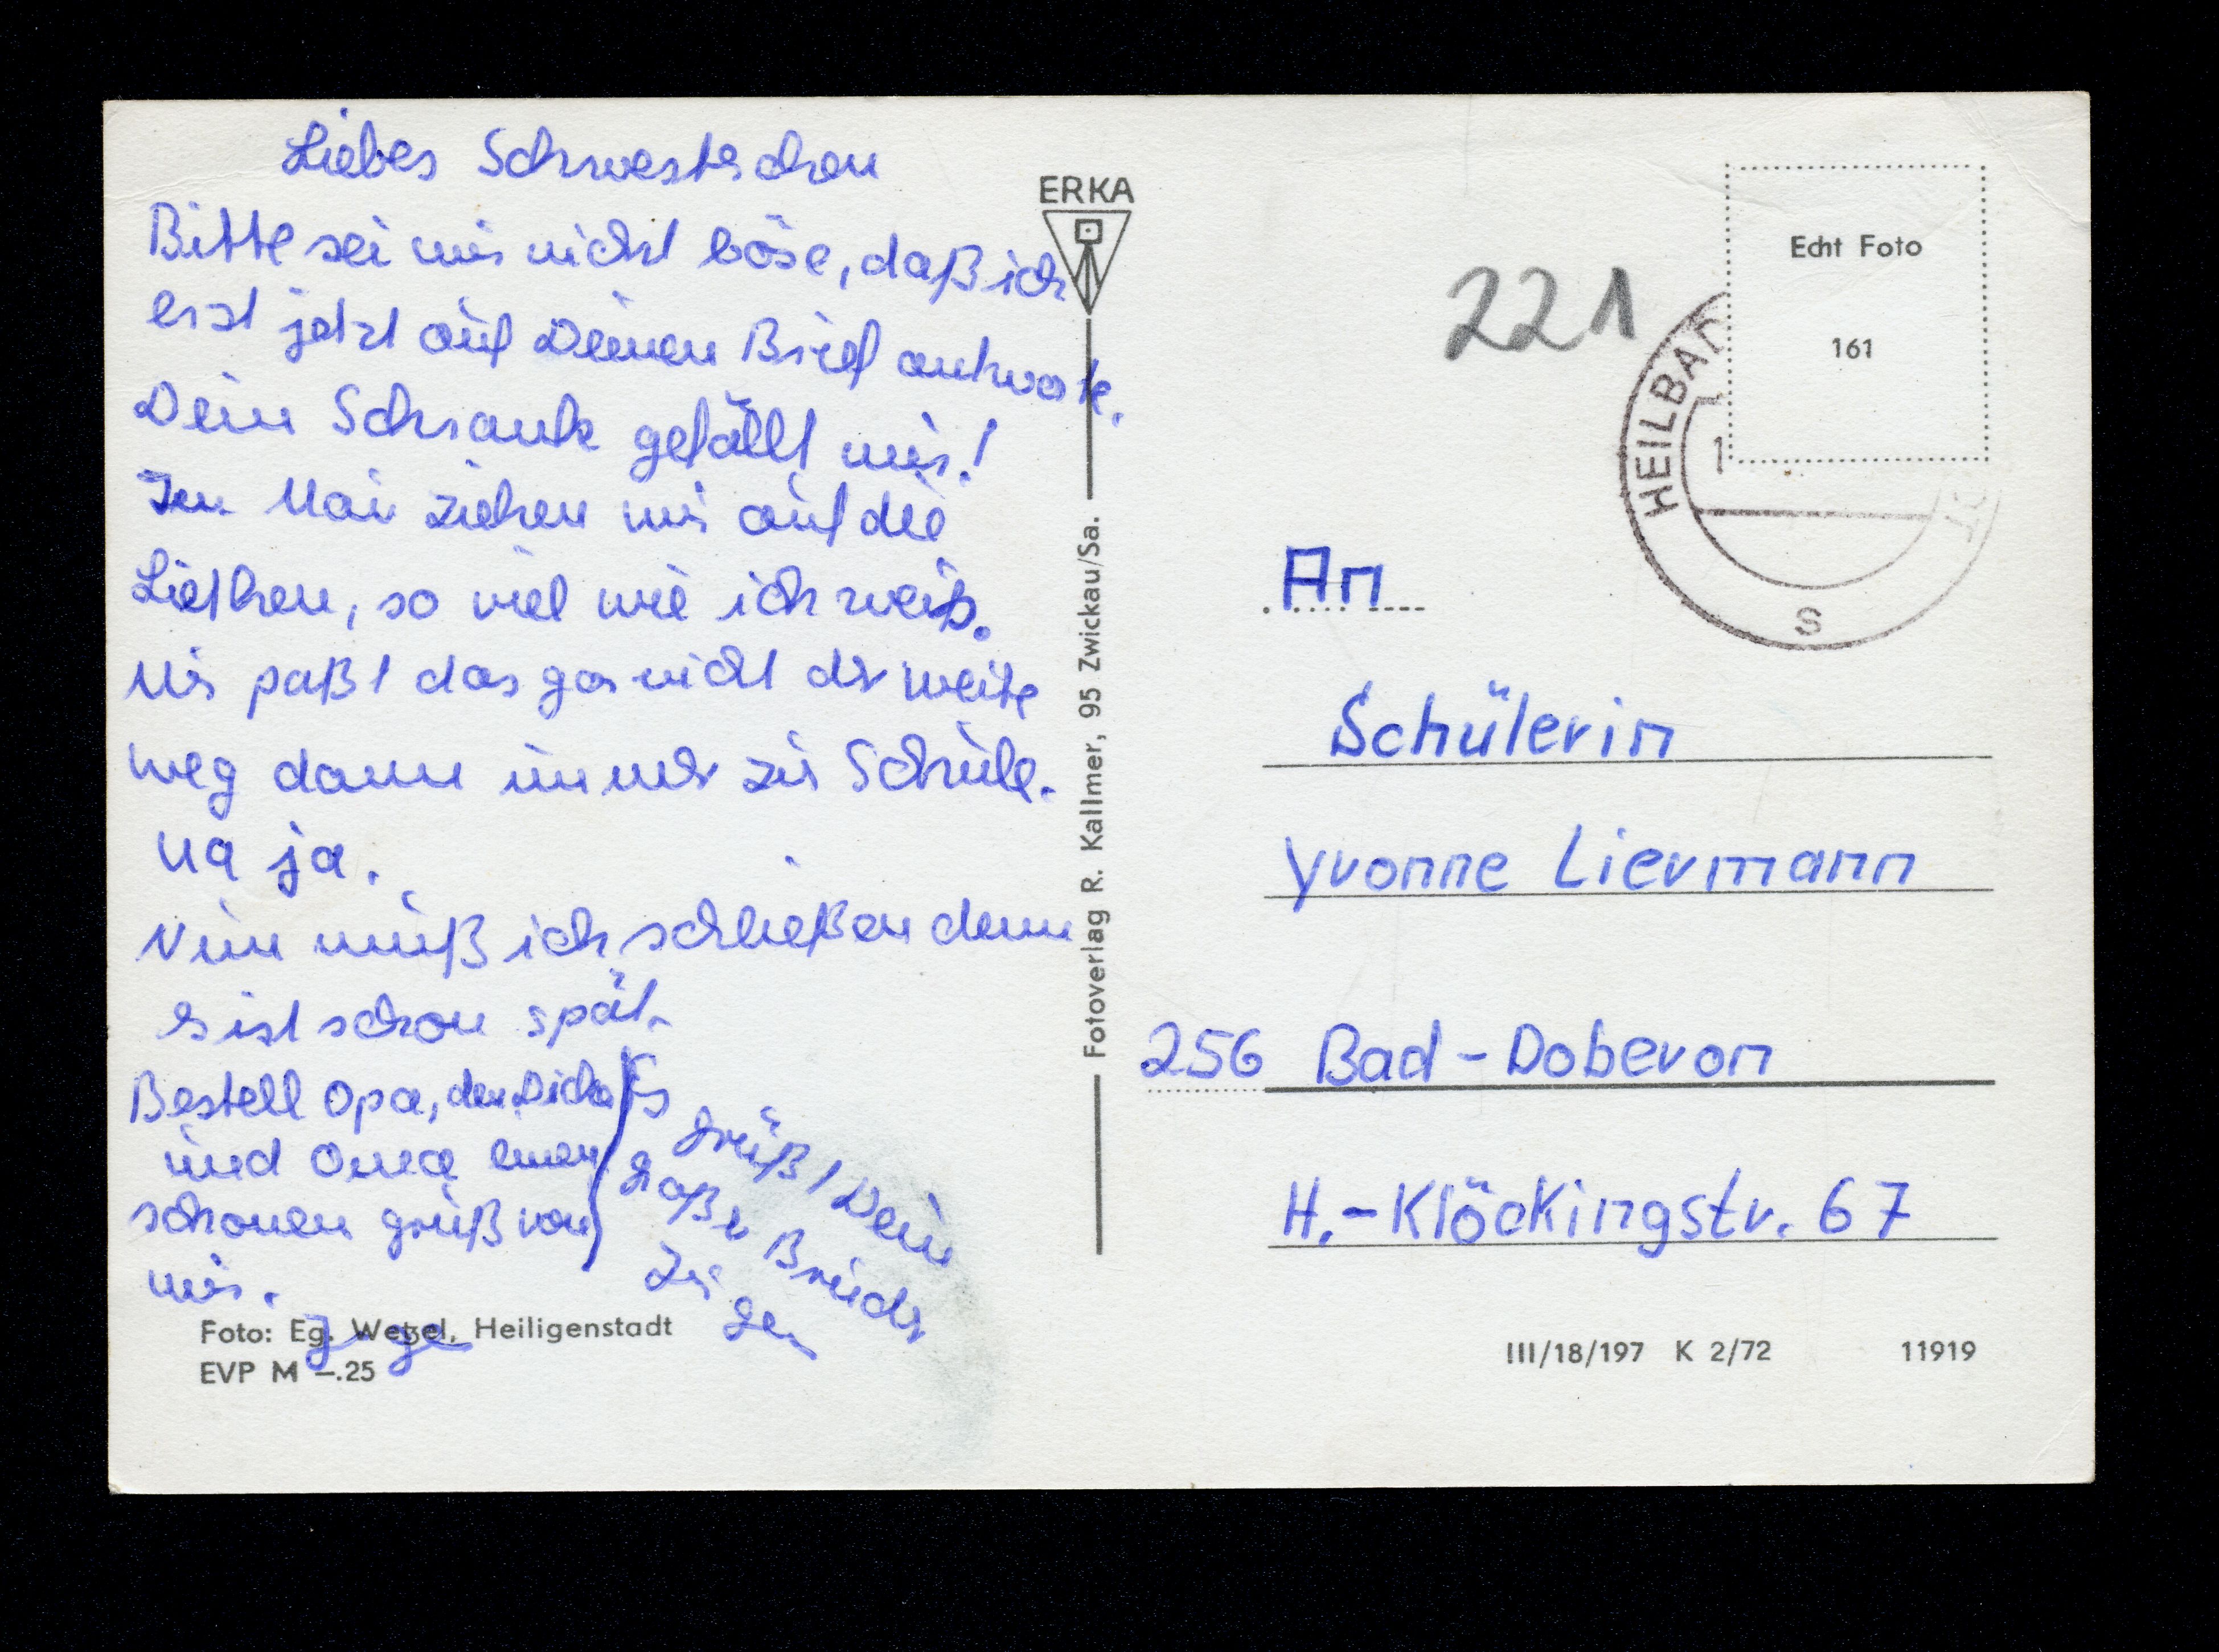 Liebes Schwesterchen
Bitte sei mir nicht böse, daß ich
erst jetzt auf Deinen Brief antworte.
Dein Schrank gefällt mir!
Im Mai ziehen wir auf die
Liethen, so viel wie ich weiß.
Mir paßt das gar nicht der weite
weg dann immer zur Schule.
Na ja.
Nun muß ich schließen denn
es ist schon spät.
Bestell Opa, den
und Oma einen
schönen gruß von
mir.
Es
grüßt Dein
großer Bruder
ERKA
Fotoverlag R. Kallmer, 95 Zwickau/Sa.
Foto: Eg. Wetzel, Heiligenstadt
EVP M –.25
221
Echt Foto
161
HEILBAD
1
S
An
Schülerin
Yvonne Liermann
256 Bad-Doberon
H.-Klöckingstr. 67
III/18/197 K 2/72 11919